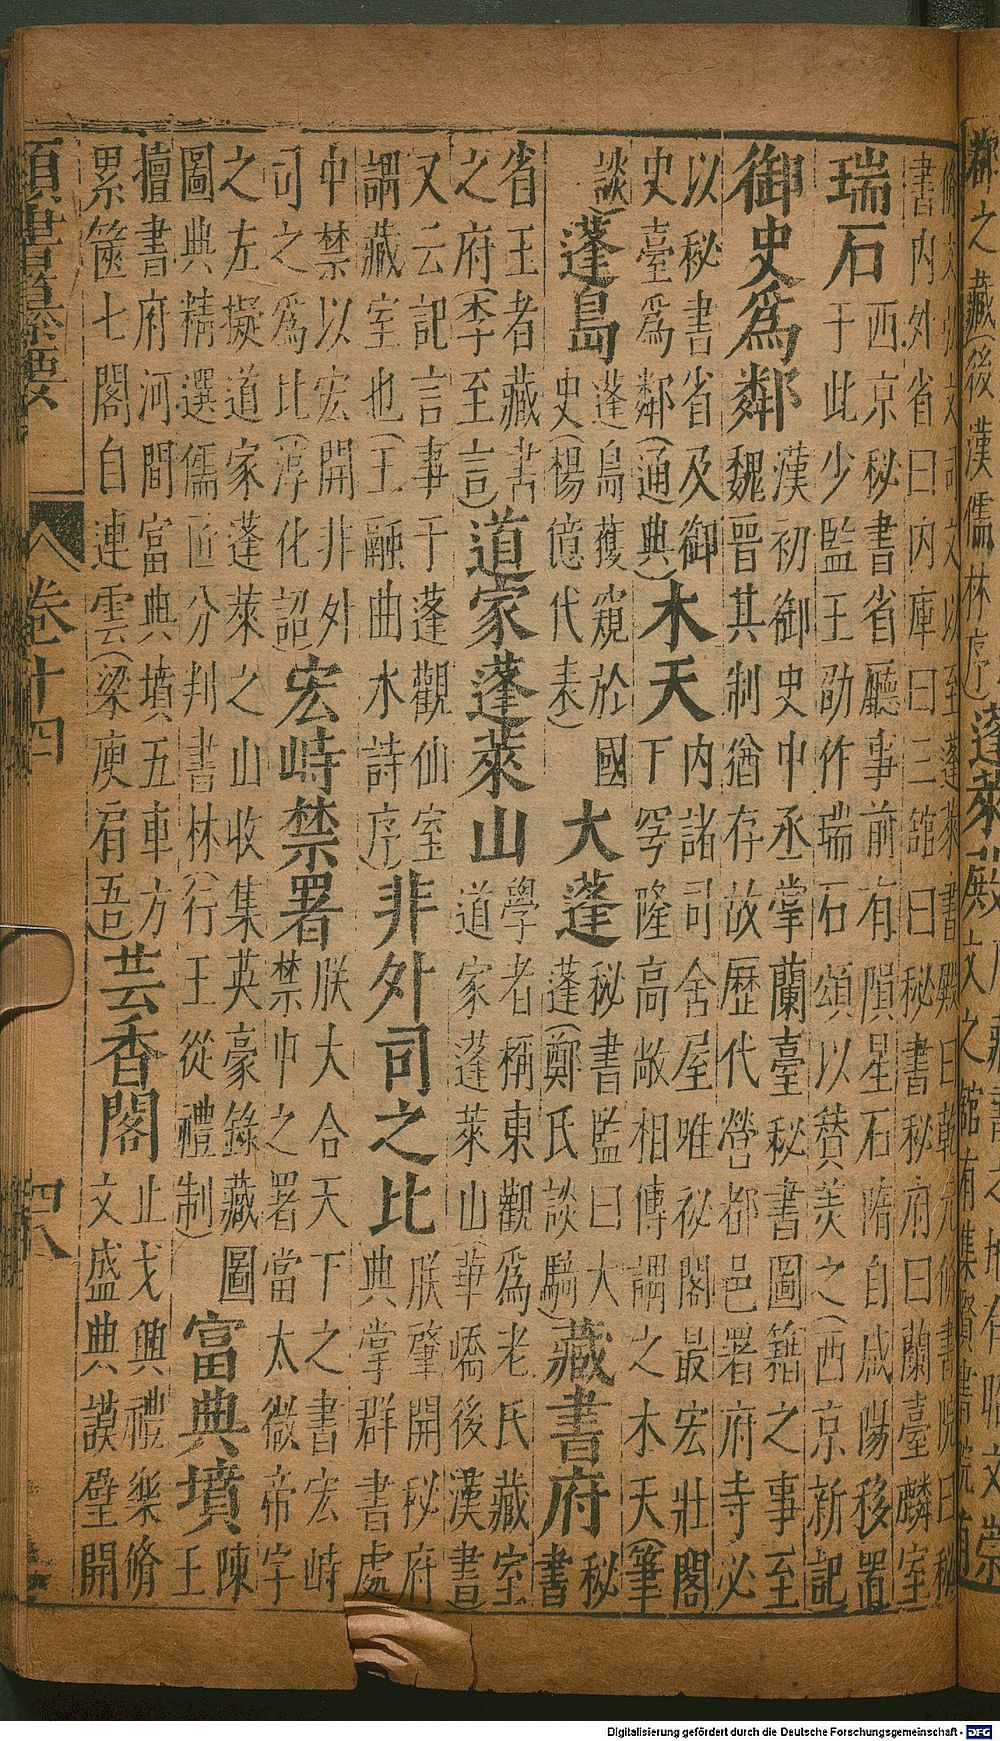 鄰之藏(後漢儒林序)蓬萊殿文之館有集賢書院
以至蓬萊書殿曰乾元脩書院曰秘
書內外省曰內庫曰三舘曰秘書秘府曰蘭臺麟室
瑞石
西京秘書省廳事前有隕星石隋自咸陽移置
于此少監王劭作瑞石頌以賛美之(西京新記
御史爲鄰
漢初御史中丞掌蘭臺秘書圖籍之事至
魏晉其制猶存故歷代營都邑署府寺必
以秘書省及御
史臺爲鄰(通典)
木天
內諸司舍屋唯祕閣最宏壯閣
下穹隆高敞相傳謂之木天(筆
談)
蓬島
蓬島獲窺於國
史(楊億代表)
大蓬
秘書監曰大
蓬(鄭氏談騎)
藏書府
秘
書
省王者藏書
之府(李至言)
道家蓬萊山
學者稱東觀爲老氏藏室
道家蓬萊山(華嶠後漢書)
又云記言事于蓬觀仙室
謂藏室也(王融曲水詩序)
非外司之比
朕肇開秘府
典掌群書處
中禁以宏開非外
司之爲比(淳化詔)
宏峙禁署
朕大合天下之書宏峙
禁中之署當太微帝字
之左擬道家蓬萊之山收集英豪錄藏圖
圖典精選儒匠分判書林(行王從禮制)
富典墳
陳
王
擅書府河間富典墳五車方
累篋七閣自連雲(梁庾肩吾)
芸香閣
止戈興禮樂脩
文盛典謨壁開
類書纂要 卷十四 四八
Digitalisierung gefördert durch die Deutsche Forschungsgemeinschaft - DFG